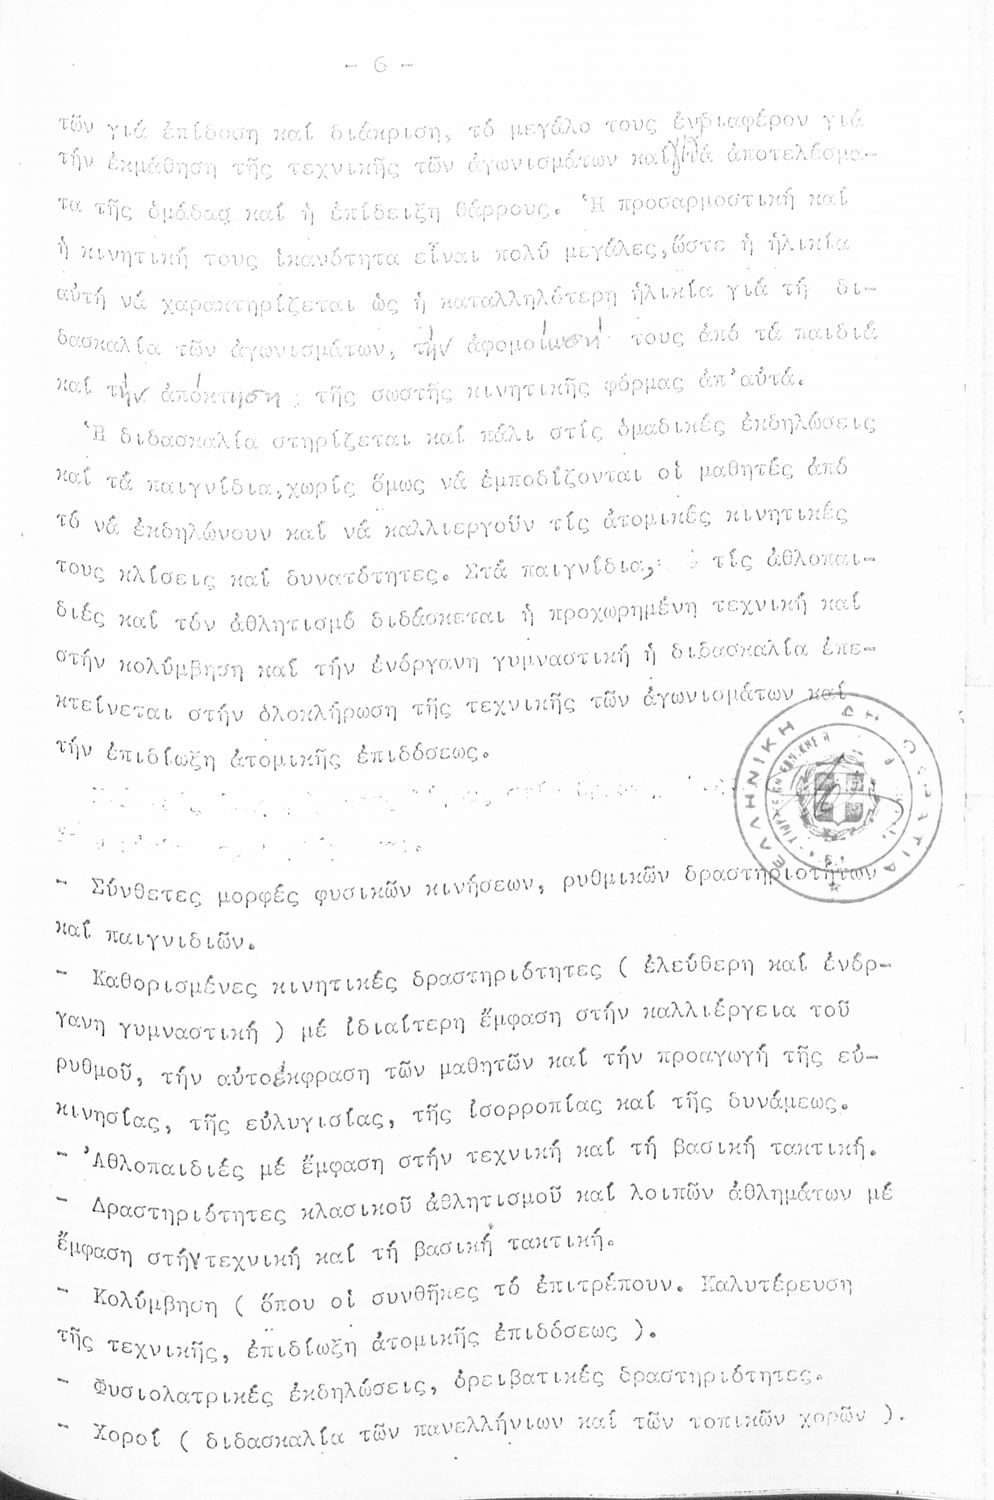 - 6 -
τῶν γιά ἐπίδοση καί διάκριση, τό μεγάλο τους ἐνδιαφέρον γιά
τήν ἐκμάθηση τῆς τεχνικῆς τῶν ἀγωνισμάτων καί γιά ἀποτελέσμα-
τα τῆς ὁμάδας καί ἡ ἐπίδειξη θάρρους. Ἡ προσαρμοστική καί
ἡ κινητική τους ἱκανότητα εἶναι πολύ μεγάλες,ὥστε ἡ ἡλικία
αὐτή νά χαρακτηρίζεται ὡς ἡ καταλληλότερη ἡλικία γιά τή δι-
δασκαλία τῶν ἀγωνισμάτων, τήν ἀφομοίωση τους ἀπό τά παιδιά
καί τήν ἀπόκτηση τῆς σωστῆς κινητικῆς φόρμας ἀπ'αὐτά.
Ἡ διδασκαλία στηρίζεται καί πάλι στίς ὁμαδικές ἐκδηλώσεις
καί τά παιγνίδια,χωρίς ὅμως νά ἐμποδίζονται οἱ μαθητές ἀπό
τό νά ἐκδηλώνουν καί νά καλλιεργοῦν τίς ἀτομικές κινητικές
τους κλίσεις καί δυνατότητες. Στά παιγνίδια, τίς ἀθλοπαι-
διές καί τόν ἀθλητισμό διδάσκεται ἡ προχωρημένη τεχνική καί
στήν κολύμβηση καί τήν ἐνόργανη γυμναστική ἡ διδασκαλία ἐπε-
κτείνεται στήν ὁλοκλήρωση τῆς τεχνικῆς τῶν ἀγωνισμάτων καί
τήν ἐπιδίωξη ἀτομικῆς ἐπιδόσεως.
ΕΛΛΗΝΙΚΗ ΔΗΜΟΚΡΑΤΙΑ
- Σύνθετες μορφές φυσικῶν κινήσεων, ρυθμικῶν δραστηριοτήτων
καί παιγνιδιῶν.
- Καθορισμένες κινητικές δραστηριότητες ( ἐλεύθερη καί ἐνόρ-
γανη γυμναστική ) μέ ἰδιαίτερη ἔμφαση στήν καλλιέργεια τοῦ
ρυθμοῦ, τήν αὐτοέκφραση τῶν μαθητῶν καί τήν προαγωγή τῆς εὐ-
κινησίας, τῆς εὐλυγισίας, τῆς ἰσορροπίας καί τῆς δυνάμεως.
- Ἀθλοπαιδιές μέ ἔμφαση στήν τεχνική καί τή βασική τακτική.
- Δραστηριότητες κλασικοῦ ἀθλητισμοῦ καί λοιπῶν ἀθλημάτων μέ
ἔμφαση στήν τεχνική καί τή βασική τακτική.
- Κολύμβηση ( ὅπου οἱ συνθῆκες τό ἐπιτρέπουν. Καλυτέρευση
τῆς τεχνικῆς, ἐπιδίωξη ἀτομικῆς ἐπιδόσεως ).
- Φυσιολατρικές ἐκδηλώσεις, ὀρειβατικές δραστηριότητες.
- Χοροί ( διδασκαλία τῶν πανελλήνιων καί τῶν τοπικῶν χορῶν ).